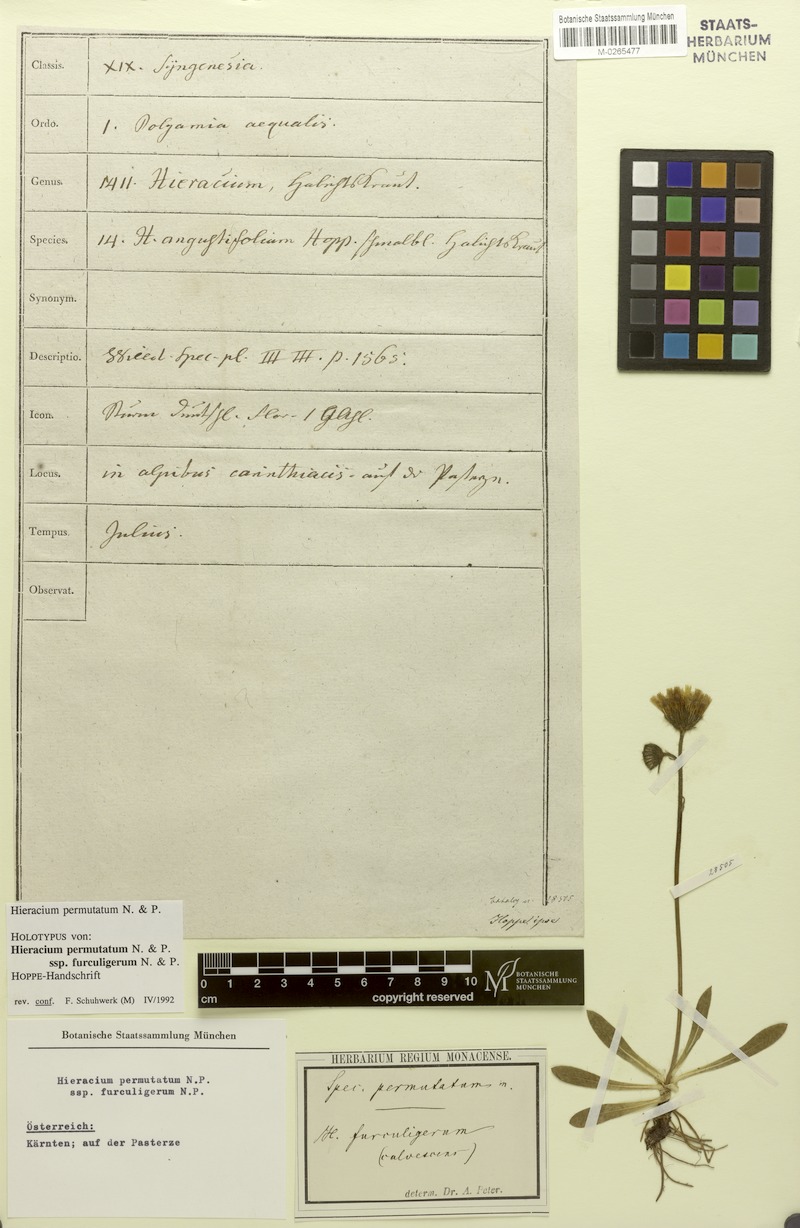 Botanische Staatssammlung München
M-0265477
STAATS-
HERBARIUM
MÜNCHEN
Classis. XIX. Syngenesia.
Ordo. 1. Polygamia aequalis.
Genus. 1411. Hieracium, Habichtskraut.
Species. 14. H. angustifolium Hopp. schmalbl. Habichtskraut
Synonym.
Descriptio. Spec. pl. III III. p. 1565.
Icon. Sturm
Locus. in alpibus carinthiacis. auf der Pasterze.
Tempus. Julius.
Observat.
28505
Hoppe ipse
Hieracium permutatum N. & P.
HOLOTYPUS von:
Hieracium permutatum N. & P.
ssp. furculigerum N. & P.
HOPPE-Handschrift
rev. conf. F. Schuhwerk (M) IV/1992
0 1 2 3 4 5 6 7 8 9 10
cm copyright reserved
BOTANISCHE
STAATSSAMMLUNG
MÜNCHEN
Botanische Staatssammlung München
Hieracium permutatum N.P.
ssp. furculigerum N.P.
Österreich:
Kärnten; auf der Pasterze
HERBARIUM REGIUM MONACENSE.
Spec. permutatum m.
H. furculigerum
(calvescens)
determ. Dr. A. Peter.